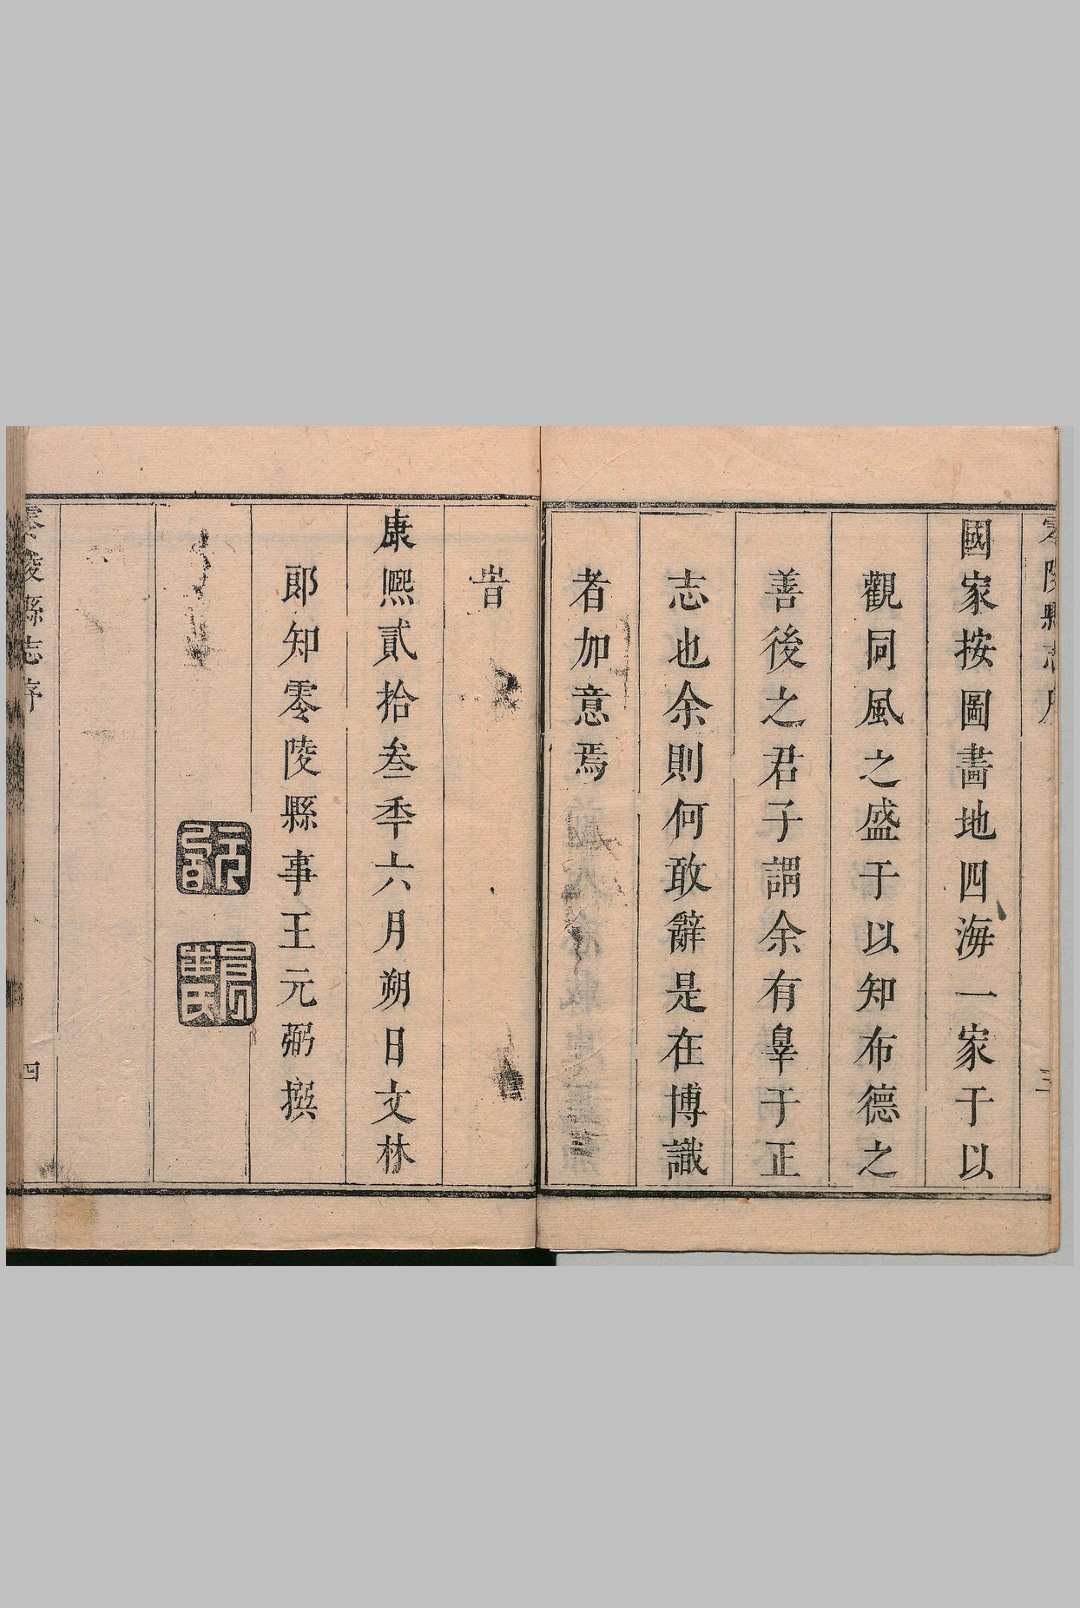 零陵縣志序
三
國家按圖畵地四海一家于以
觀同風之盛于以知布德之
善後之君子謂余有辠于正
志也余則何敢辭是在博識
者加意焉
旹
康熈貳拾叁秊六月朔日文林
郎知零陵縣事王元弼撰
零陵縣志序
四